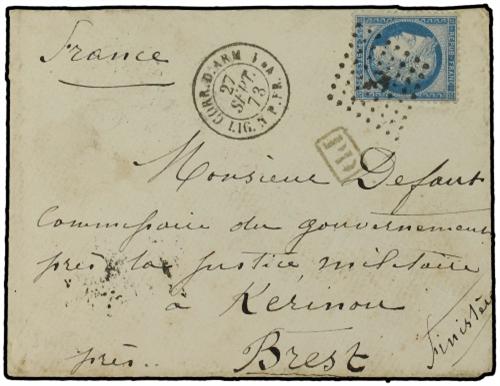 France
CORR. D. ARM. LIG. N P. FR.
27
SEPT.
73
REPUB. FRANC.
PD
Monsieur Defaut
Commissaire du gouvernement
près la justice militaire
à Kerinou
près.. Brest
Finistère